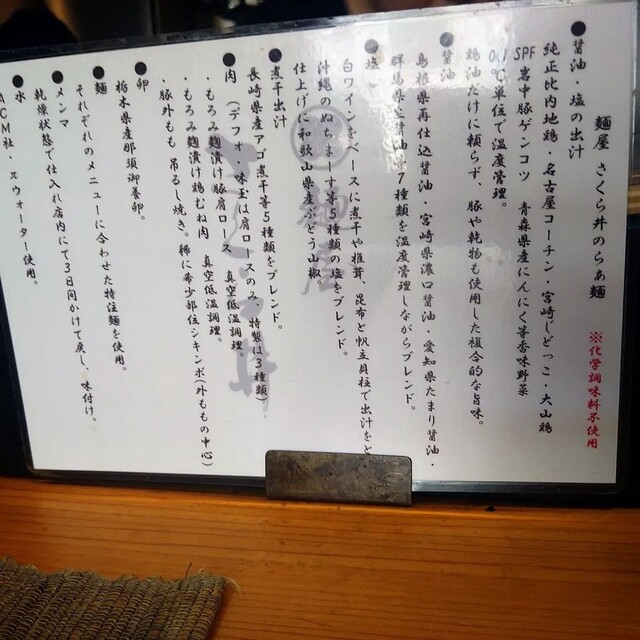 麺屋 さくら井のらぁ麺 ※化学調味料不使用
● 醤油・塩の出汁
純正比内地鶏・名古屋コーチン・宮崎じどっこ・大山鶏
SPF岩中豚ゲンコツ 青森県産にんにく等香味野菜
0.1℃単位で温度管理。
鶏油だけに頼らず、豚や乾物も使用した複合的な旨味。
● 醤油
島根県再仕込醤油・宮崎県濃口醤油・愛知県たまり醤油・
群馬県生醤油等7種類を温度管理しながらブレンド。
● 塩
白ワインをベースに煮干や椎茸、昆布と帆立貝柱で出汁をと
沖縄のぬちまーす等5種類の塩をブレンド。
仕上げに和歌山県産ぶどう山椒。
● 煮干出汁
長崎県産アゴ煮干等5種類をブレンド。
● 肉 (デフォ、味玉は肩ロースのみ、特製は3種類)
・もろみ麹漬け豚肩ロース 真空低温調理。
・もろみ麹漬け鶏むね肉 真空低温調理。
・豚外もも 吊るし焼き。稀に希少部位シキンボ(外ももの中心)
● 卵
栃木県産那須御養卵。
● 麺
それぞれのメニューに合わせた特注麺を使用。
● メンマ
乾燥状態で仕入れ店内にて3日間かけて戻し、味付け。
● 水
ACM社・πウォーター使用。
麺屋
さくら井